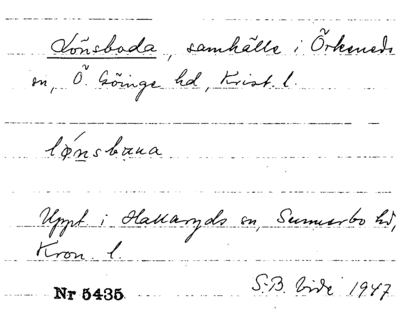 Lönsboda, samhälle i Örkeneds
sn, Ö. Göinge hd, Krist. l.
lǿnsbᴀua
Uppt i Hallaryds sn, Sunnerbo hd,
Kron. l.
S.-B. Vide 1947
Nr 5435